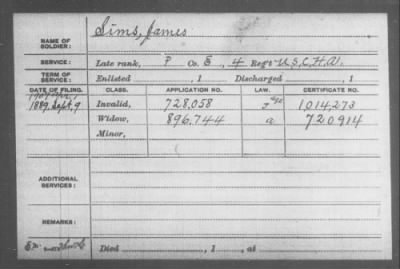 NAME OF SOLDIER: Sims, James
SERVICE: Late rank, P Co. E, 4 Reg't U.S.C.H.A.
TERM OF SERVICE: Enlisted , 1 Discharged , 1
DATE OF FILING. CLASS. APPLICATION NO. LAW. CERTIFICATE NO.
1889, Sept. 9 Invalid, 728,058 1,014,273
Widow, 896,744 a 720914
Minor,
ADDITIONAL SERVICES:
REMARKS:
Died , 1 , at